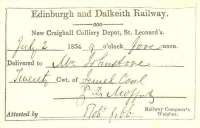 Edinburgh and Dalkeith Railway.
New Craighall Colliery Depot, St. Leonard's.
July 2 1834 9 o'clock fore noon.
Delivered to Mr Johnstone
Twenty Cwt. of Jewel Coal
Attested by Robt Gibb Railway Company's
Weigher.